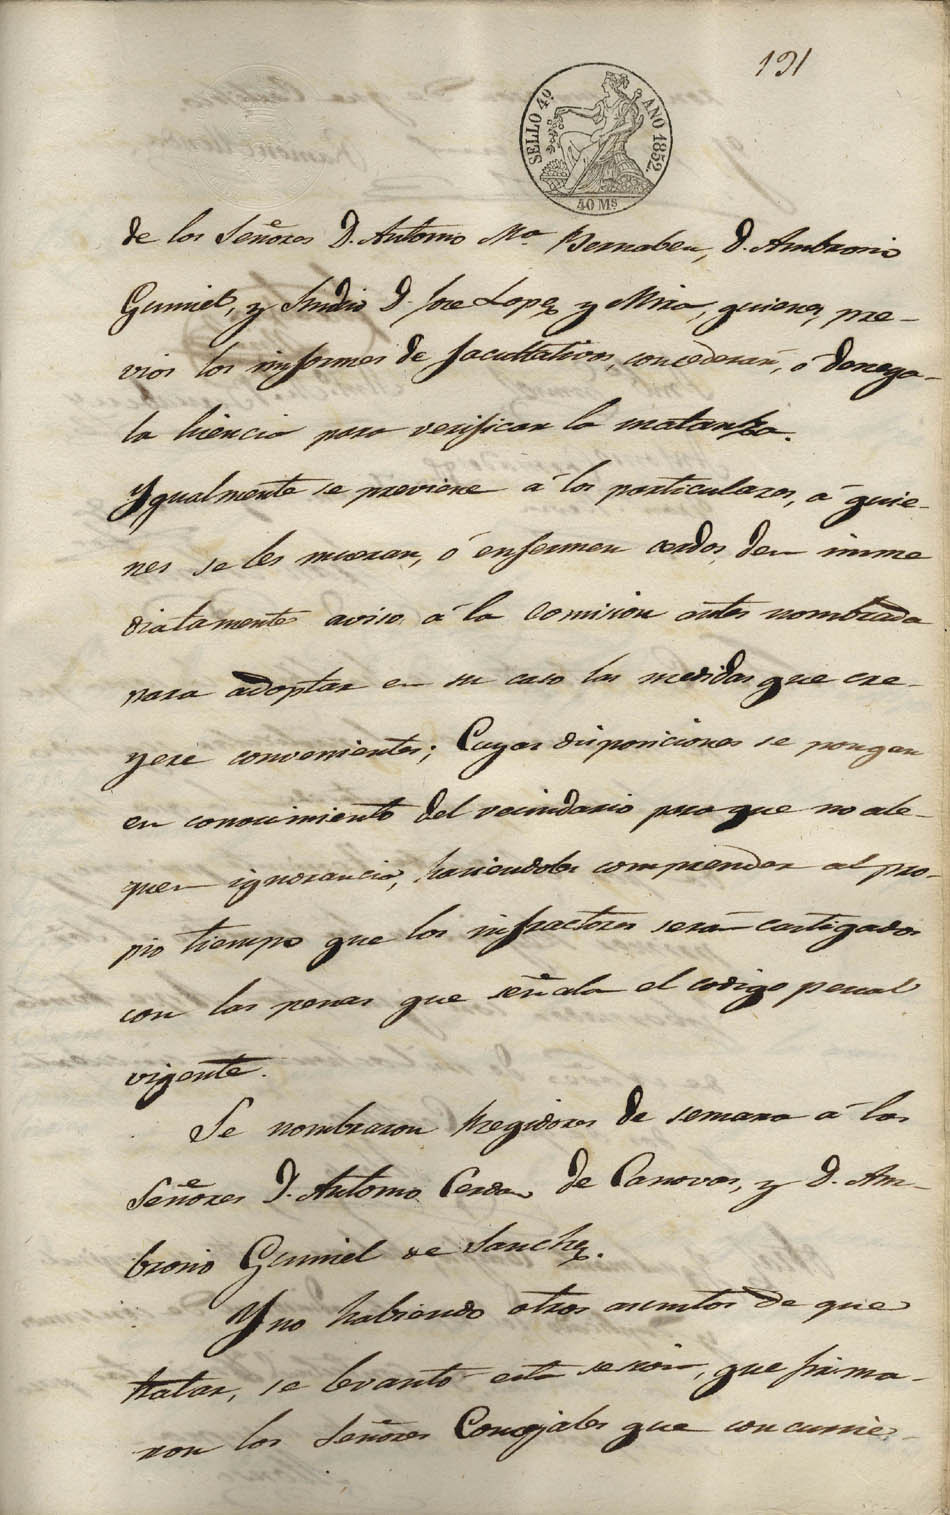 191
SELLO 4º AÑO 1852.
40 Ms
de los Señores D. Antonio Mª Bernabeu, D. Ambrosio
Gumiel, y Sindico D. Jose Lopez y Mira, quienes, pre-
vios los informes de facultativos, concederán, ó denega-
la licencia para verificar la matanza.
Ygualmente se previene á los particulares, á quie-
nes se les mueran, ó enfermen cerdos, den inme
diatamente aviso á la Comision antes nombrada
para adoptar en su caso las medidas que cre-
yere convenientes; Cuyas disposiciones se pongan
en conocimiento del vecindario para que no ale-
guen ignorancia, haciendoles comprender al pro-
pio tiempo que los infractores serán castigados
con las penas que señala el codigo penal
vigente.
Se nombraron Regidores de semana á los
Señores D. Antonio Cerdan de Canovas, y D. Am-
brosio Gumiel de Sanchez.
Y no habiendo otros asuntos de que
tratar, se levantó esta sesion, que firma-
ron los Señores Concejales que concurrie-